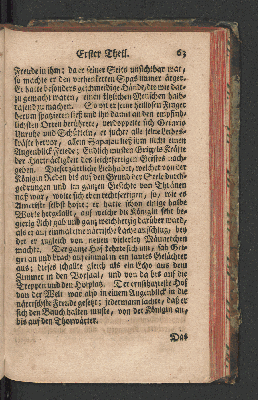 Erster Theil. 63
Freude in ihm; da er seiner Seits unsichtbar war,
so machte er den verhenkerten Spas immer ärger.
Er hatte besonders geschmeidige Hände, die wie dar-
zu gemacht waren, einen ehrlichen Menschen halb
rasend zu machen. So oft er seine heillosen Finger
herum spazieren ließ und ihn damit an den empfind-
lichsten Orten berührete, verdoppelte sich Grigris
Unruhe und Schütteln, er suchte alle seine Leibes-
kräfte hervor, allein Sapajou ließ ihm nicht einen
Augenblick Friede; Endlich mußten Grigris Kräfte
der Hartnäckigkeit des leichtfertigen Geistes nach-
geben. Dieser zärtliche Liebhaber, welcher von der
Königin Reden bis auf den Grund der Seele durch-
gedrungen und im ganzen Gesichte von Thränen
naß war, wolte sich eben rechtfertigen, so, wie es
Amarille selbst hörte; er hatte schon einige halbe
Worte hergelallt, auf welche die Königin sehr be-
gierig Acht gab und ganz weichherzig darüber ward,
als er auf einmal eine närrische Larve ausschlug, bey
der er zugleich von neuen vielerley Männerchen
machte. Der ganze Hof kehrte sich um, sah Gri-
gri an und brach auf einmal in ein lautes Gelächter
aus; dieses schallte gleich als ein Echo aus dem
Zimmer in den Vorsaal, und von da bis auf die
Treppen und den Hofplatz. Der ernsthafteste Hof
von der Welt war also in einem Augenblick in die
närrischste Freude gesetzt; jedermann lachte, daß er
sich den Bauch halten mußte, von der Königin an,
bis auf den Thorwärter.
Das